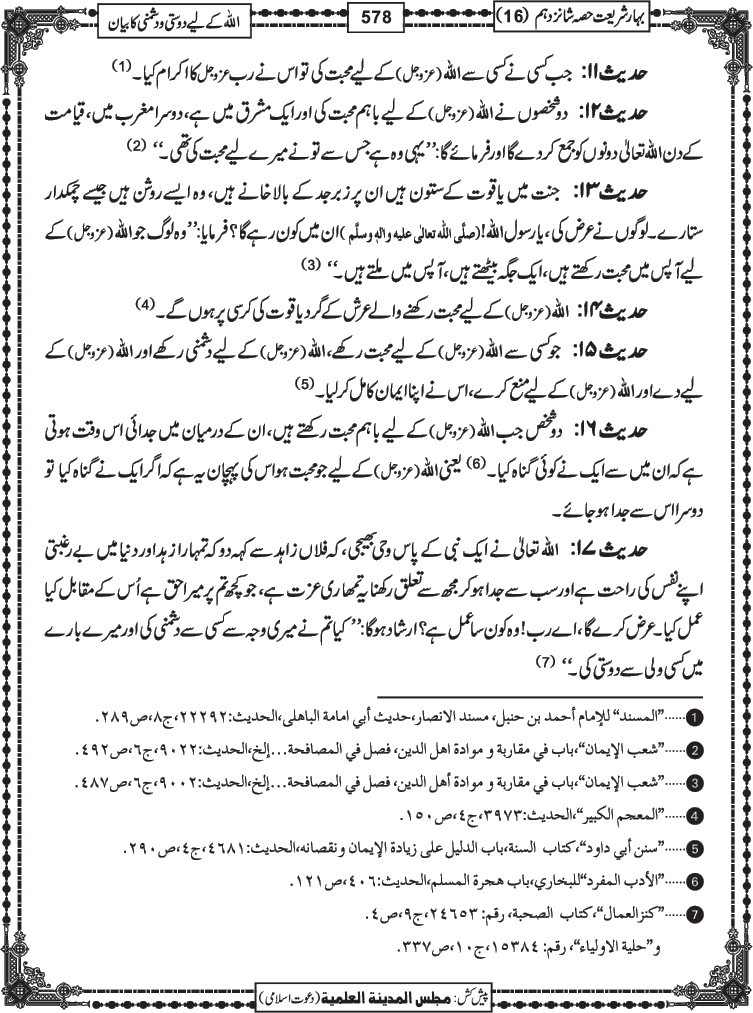 بہارِ شریعت حصہ شانزدہم (16)
578
اللہ کے لیے دوستی و دشمنی کا بیان
حدیث ۱۱: جب کسی نے کسی سے اللہ (عزوجل) کے لیے محبت کی تو اس نے رب عزوجل کا اکرام کیا۔ (1)
حدیث ۱۲: دو شخصوں نے اللہ (عزوجل) کے لیے باہم محبت کی اور ایک مشرق میں ہے، دوسرا مغرب میں، قیامت
کے دن اللہ تعالیٰ دونوں کو جمع کر دے گا اور فرمائے گا: ’’یہی وہ ہے جس سے تو نے میرے لیے محبت کی تھی۔‘‘ (2)
حدیث ۱۳: جنت میں یاقوت کے ستون ہیں ان پر زبرجد کے بالاخانے ہیں، وہ ایسے روشن ہیں جیسے چمکدار
ستارے۔ لوگوں نے عرض کی، یارسول اللہ! (صلَّی اللہ تعالٰی علیہ واٰلہٖ وسلَّم) ان میں کون رہے گا؟ فرمایا: ’’وہ لوگ جو اللہ (عزوجل) کے
لیے آپس میں محبت رکھتے ہیں، ایک جگہ بیٹھتے ہیں، آپس میں ملتے ہیں۔‘‘ (3)
حدیث ۱۴: اللہ (عزوجل) کے لیے محبت رکھنے والے عرش کے گرد یاقوت کی کرسی پر ہوں گے۔ (4)
حدیث ۱۵: جو کسی سے اللہ (عزوجل) کے لیے محبت رکھے، اللہ (عزوجل) کے لیے دشمنی رکھے اور اللہ (عزوجل) کے
لیے دے اور اللہ (عزوجل) کے لیے منع کرے، اس نے اپنا ایمان کامل کرلیا۔ (5)
حدیث ۱۶: دو شخص جب اللہ (عزوجل) کے لیے باہم محبت رکھتے ہیں، ان کے درمیان میں جدائی اس وقت ہوتی
ہے کہ ان میں سے ایک نے کوئی گناہ کیا۔ (6) یعنی اللہ (عزوجل) کے لیے جو محبت ہو اس کی پہچان یہ ہے کہ اگر ایک نے گناہ کیا تو
دوسرا اس سے جدا ہو جائے۔
حدیث ۱۷: اللہ تعالیٰ نے ایک نبی کے پاس وحی بھیجی، کہ فلاں زاہد سے کہہ دو کہ تمہارا زہد اور دنیا میں بے رغبتی
اپنے نفس کی راحت ہے اور سب سے جدا ہو کر مجھ سے تعلق رکھنا یہ تمہاری عزت ہے، جو کچھ تم پر میرا حق ہے اُس کے مقابل کیا
عمل کیا۔ عرض کرے گا، اے رب! وہ کون سا عمل ہے؟ ارشاد ہوگا: ’’کیا تم نے میری وجہ سے کسی سے دشمنی کی اور میرے بارے
میں کسی ولی سے دوستی کی۔‘‘ (7)
1 ......’’المسند‘‘ للإمام أحمد بن حنبل، مسند الانصار، حديث أبي امامة الباهلى، الحديث: ۲۲۲۹۲، ج۸، ص۲۸۹.
2 ......’’شعب الإيمان‘‘، باب في مقاربة و موادة اهل الدين، فصل في المصافحة...إلخ، الحديث: ۹۰۲۲، ج۶، ص۴۹۲.
3 ......’’شعب الإيمان‘‘، باب في مقاربة و موادة أهل الدين، فصل في المصافحة...إلخ، الحديث: ۹۰۰۲، ج۶، ص۴۸۷.
4 ......’’المعجم الكبير‘‘، الحديث: ۳۹۷۳، ج۴، ص۱۵۰.
5 ......’’سنن أبي داود‘‘، كتاب السنة، باب الدليل على زيادة الإيمان و نقصانه، الحديث: ۴۶۸۱، ج۴، ص۲۹۰.
6 ......’’الأدب المفرد‘‘ للبخاري، باب هجرة المسلم، الحديث: ۴۰۶، ص۱۲۱.
7 ......’’كنزالعمال‘‘، كتاب الصحبة، رقم: ۲۴۶۵۳، ج۹، ص۴.
و’’حلية الاولياء‘‘، رقم: ۱۵۳۸۴، ج۱۰، ص۳۳۷.
پیش کش: مجلس المدينة العلمية (دعوت اسلامی)